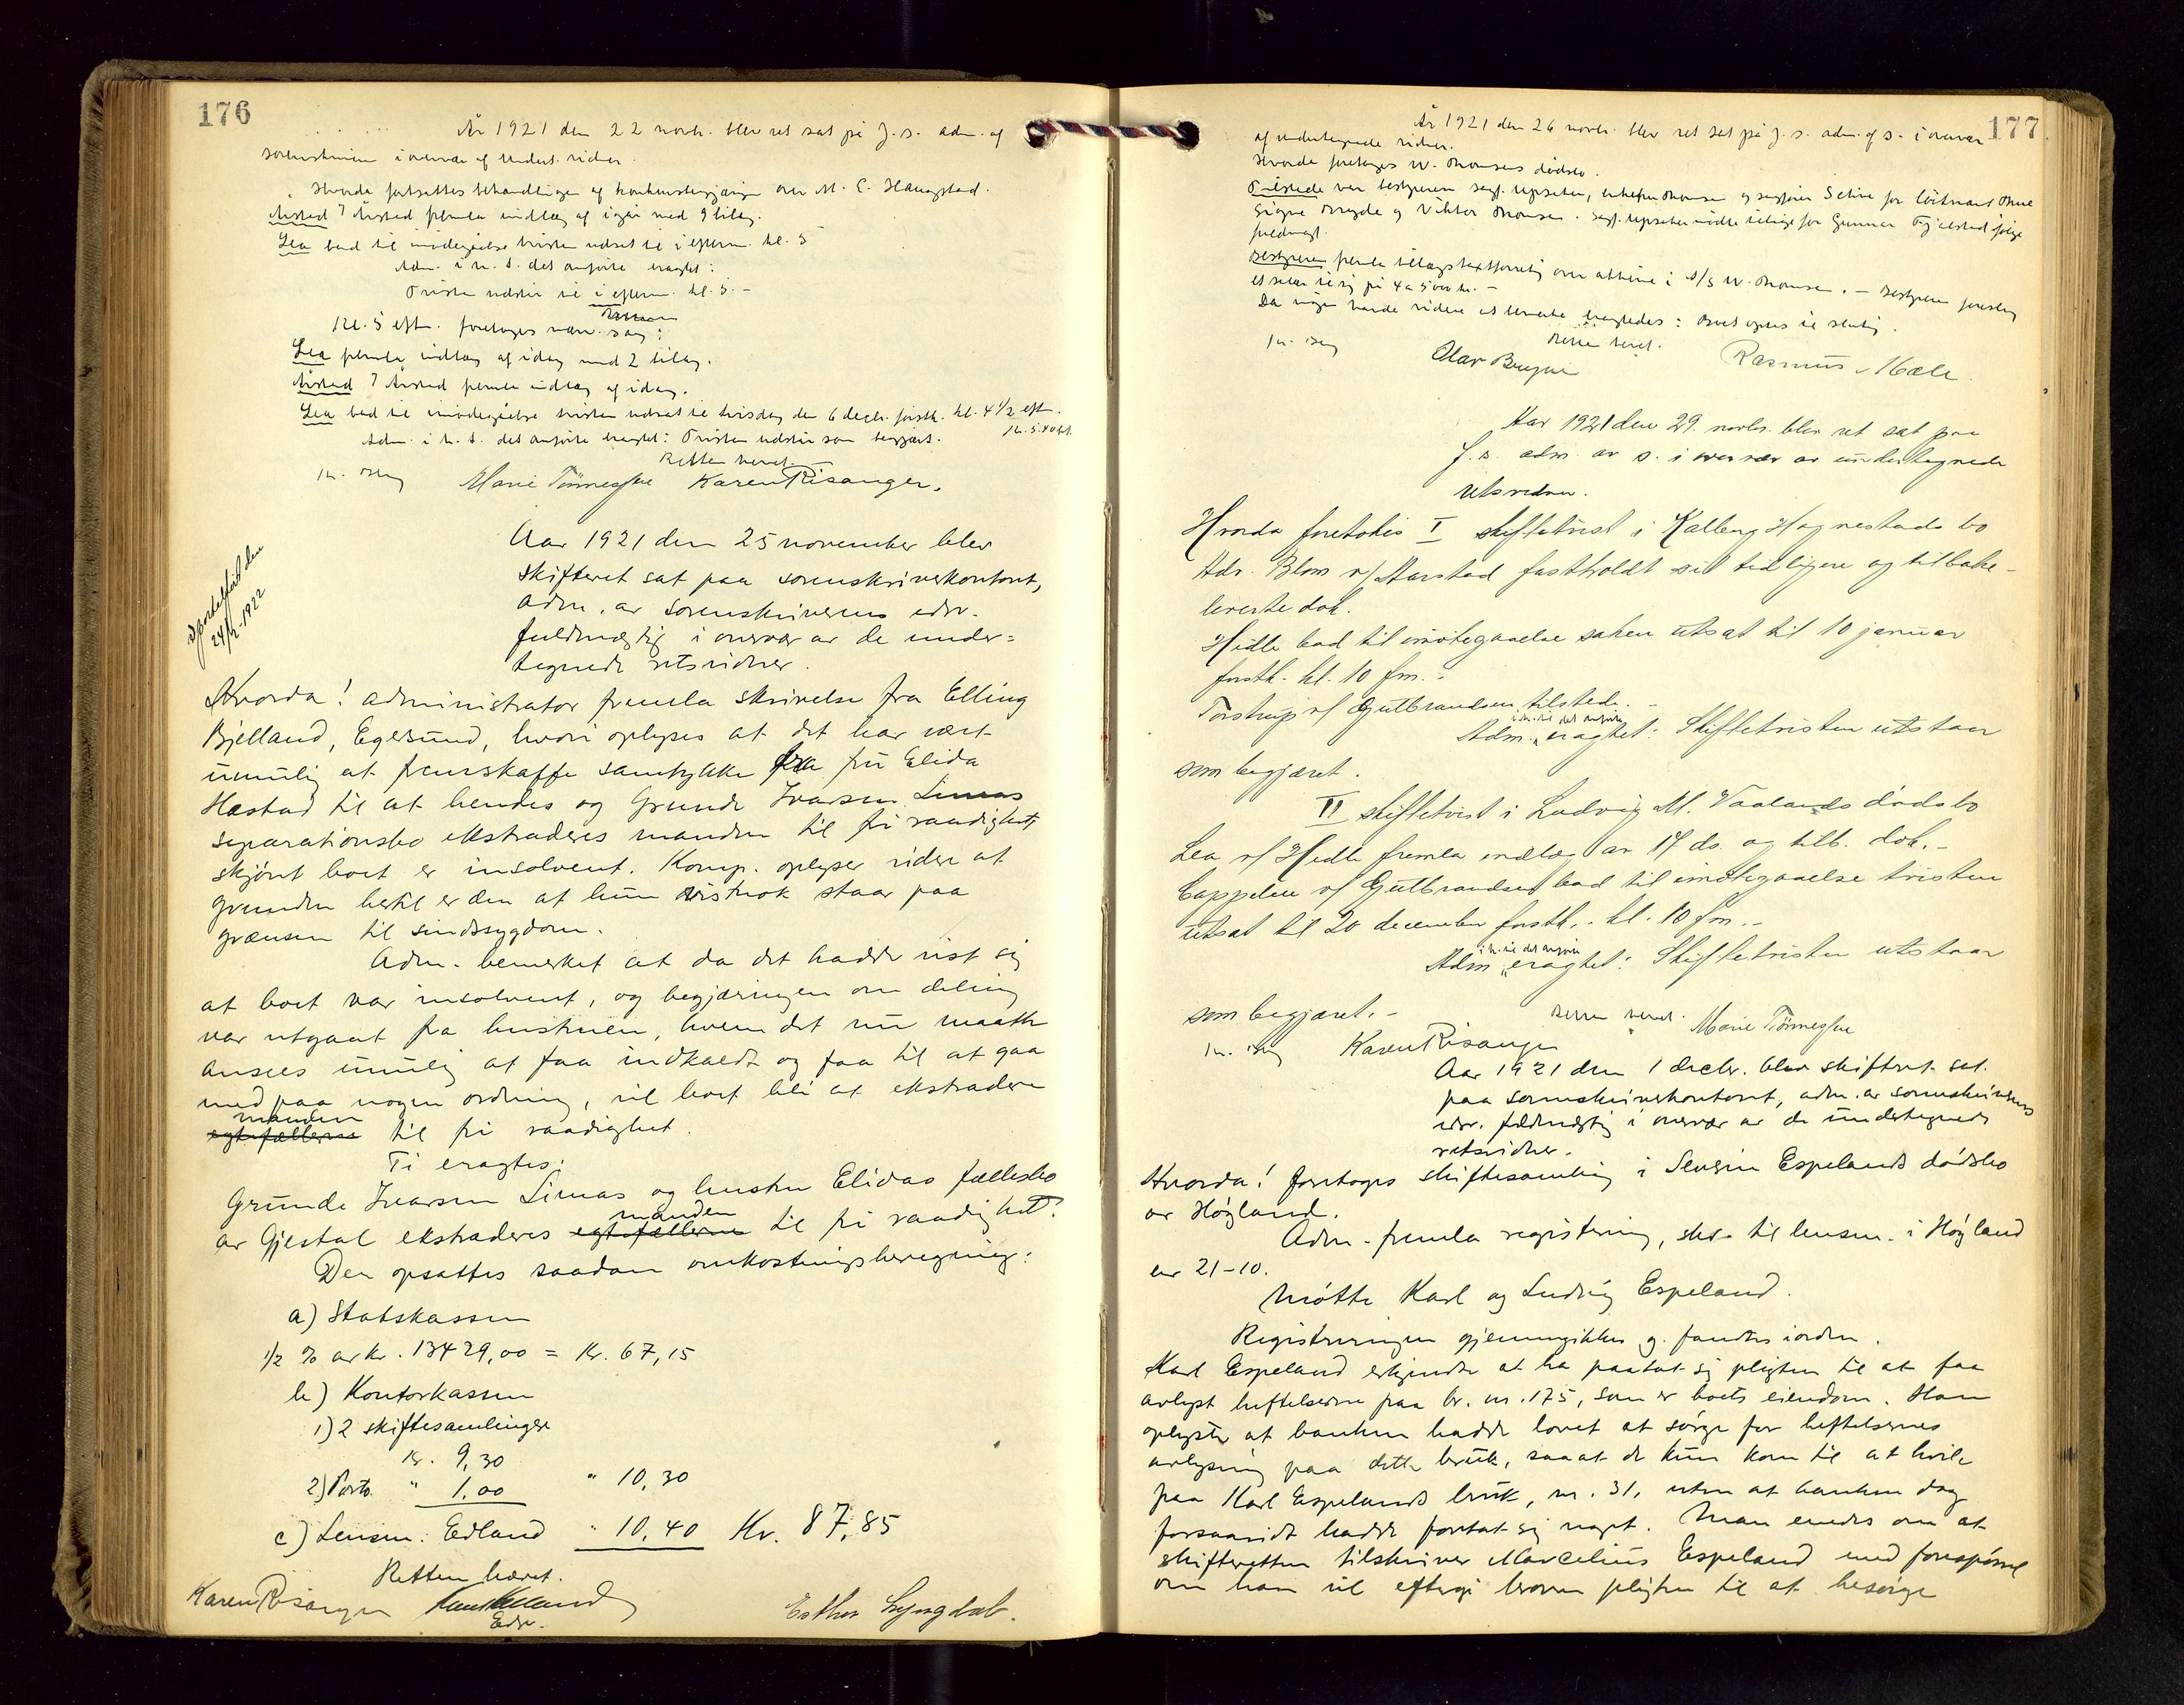 176
År 1921 den 22 novbr. blev ret sat på J. s. adm. af
sorenskriveren i overvær af undert. vidner.
Hvorda fortsattes behandlingen af konkursbegjæringen over M. C. Haugstad.
Aarstad / Aarstad fremla indlæg af igår med 9 bilag.
Lea bad til imødegåelse tvisten udsat til i efterm. kl. 5
Adm. i h. t. det anførte eragtet:
Tvisten udstår til i efterm. kl. 5. -
Kl. 5 eft. foretoges nævn. sag:
Lea fremla indlæg af idag med 2 bilag.
Aarstad / Aarstad fremla indlæg af idag.
Lea bad til imødegåelse tvisten udsat til tirsdag den 6 decbr. førstk. kl. 4 1/2 eft.
Adm. i h. t. det anførte eragtet: Tvisten udstår som begjært. Kl. 5.40
Retten hævet.
Marie Tönnessen Karen Risanger.
Sportelført den
24/2-1922
Aar 1921 den 25 november blev
skifteret sat paa sorenskriverkontoret,
adm. av sorenskriverens edsv.
fuldmægtig i overvær av de under=
tegnede retsvidner.
Hvorda! administrator fremla skrivelse fra Elling
Bjelland, Egersund, hvori oplyses at det har vært
umulig at fremskaffe samtykke fra fru Elida
Hæstad til at hendes og Grunde Ivarsen Limas
separationsbo ekstraderes manden til fri raadighet,
skjønt boet er insolvent. Komp. oplyser videre at
grunden hertil er den at hun vistnok staar paa
grænsen til sindssygdom.
Adm. bemerket at da det hadde vist sig
at boet var insolvent, og begjæringen om deling
var utgaat fra hustruen, hvem det nu maatte
ansees umulig at faa indkaldt og faa til at gaa
med paa nogen ordning, vil boet bli at ekstradere
manden
egtefællerne til fri raadighet.
Ti eragtes:
Grunde Ivarsen Limas og hustru Elidas fællesbo
manden
av Gjestal ekstraderes egtefællerne til fri raadighet.
Der opsattes saadan omkostningsberegning:
a) Statskassen
1/2 % av kr. 13429,00 = Kr. 67,15
b) Kontorkassen
1) 2 skiftesamlinger
Kr. 9,30
2) Porto " 1,00 " 10,30
c) Lensm. Edland " 10,40 Kr. 87,85
Retten hævet.
Karen Risanger Esther Lyngdal.
Edsv.
177
År 1921 den 26 novbr. blev ret sat på J. s. adm. af s. i overvær
af undertegnede vidner.
Hvorda foretoges W. Thomsens dødsbo.
Tilstede var bestyreren sagf. Upsaker, enkefru Thomsen og sagfører
Signe og Viktor Thomsen. Sagf. Upsaker mødte tillige for Gunnar Fjelstad ifølge
fuldmagt.
Bestyreren fremla tillægstaxtforretning over aktierne i A/S W. Thomsen. - Bestyreren foreslog
Da ingen havde videre at bemerke eragtedes: Boet optas til slutning.
Retten hævet.
Olav Bryne Rasmus Mæle.
Aar 1921 den 29. novbr. blev ret sat paa
J. s. adm. av s. i overvær av undertegnede
retsvidner.
Hvorda foretokes I skiftetvist i Kalberg Hognestads bo
Adv. Blom v/ Aarstad fastholdt sit tidligere og tilbake-
leverte dok.
Hidle bad til imøtegaaelse saken utsat til 10 januar
førstk. kl. 10 fm. -
Torstrup v/ Gulbrandsen tilstede. -
i h. til det anførte
Adm. eragtet: Skiftetvisten utstaar
som begjæret.
II skiftetvist i Ludvig M. Vaalands dødsbo
Lea v/ Hidle fremla indlæg av 17 ds. og tilb. dok. -
Cappelen v/ Gulbrandsen bad til imøtegaaelse tvisten
utsat til 20 december førstk. kl. 10 fm. -
i h. til det anførte
Adm. eragtet: Skiftetvisten utstaar
som begjæret. -
Retten hævet. Marie Tönnessen
Karen Risanger
Aar 1921 den 1 decbr. blev skifteret sat
paa sorenskriverkontoret, adm. av sorenskriverens
edsv. fuldmægtig i overvær av de undertegnede
retsvidner.
Hvorda! foretoges skiftesamling i Severin Espelands dødsbo
av Høyland.
Adm. fremla registrering, skr. til lensm. i Høyland
av 21-10.
Møtte Karl og Ludvig Espeland.
Registreringen gjennemgikkes og fandtes iorden.
Karl Espeland erkjendte at ha paatat sig pligten til at faa
avlyst heftelserne paa br. nr. 175, som er boets eiendom. Han
oplyste at banken hadde lovet at sørge for heftelsernes
avlysning paa dette bruk, saaat de kun kom til at hvile
paa Karl Espelands bruk, nr. 31, uten at banken dog
forsaavidt hadde fortat sig noget. Man enedes om at
skifteretten tilskriver Marcelius Espeland med forespørsel
om han vil eftergi broren pligten til at besørge